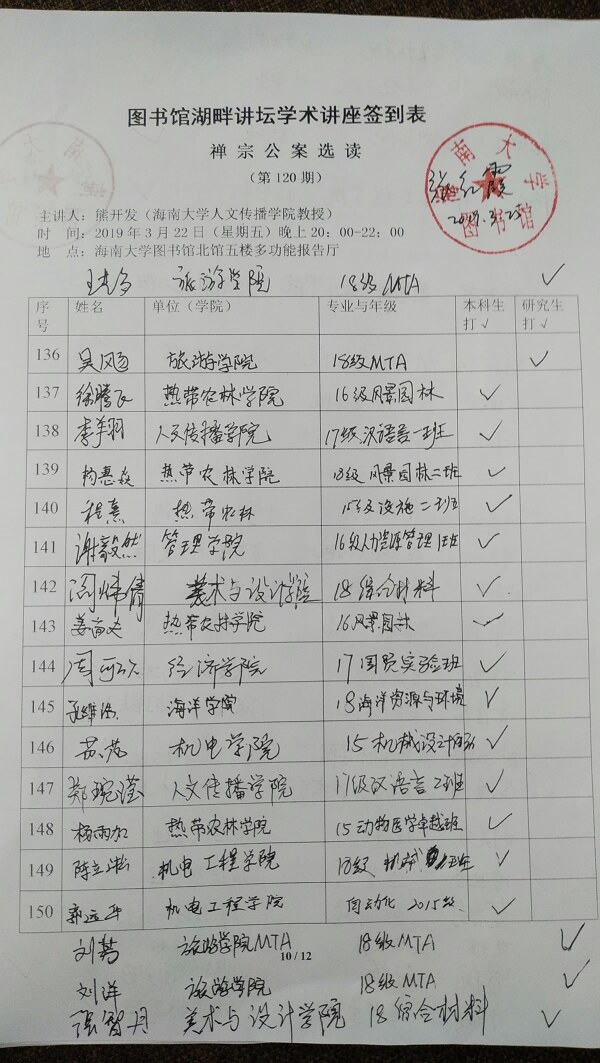 图书馆湖畔讲坛学术讲座签到表
禅宗公案选读
（第120期）
主讲人：熊开发（海南大学人文传播学院教授）
时 间：2019年3月22日（星期五）晚上20：00-22：00
地 点：海南大学图书馆北馆五楼多功能报告厅
海南大学图书馆
张红霞
旅游学院 18级MTA ✓
序号 姓名 单位（学院） 专业与年级 本科生打✓ 研究生打✓
136 旅游学院 18级MTA ✓
137 徐腾飞 热带农林学院 16级风景园林 ✓
138 李羊羽 人文传播学院 17级汉语言一班 ✓
139 热带农林学院 18级风景园林二班 ✓
140 程熹 热带农林 15级设施二班 ✓
141 谢毅然 管理学院 16级人力资源管理1班 ✓
142 美术与设计学院 18综合材料 ✓
143 热带农林学院 16风景园林 ✓
144 周 经济学院 17国贸实验班 ✓
145 海洋学院 18海洋资源与环境 ✓
146 苏茂 机电学院 15机械设计 ✓
147 郑琬滢 人文传播学院 17级汉语言2班 ✓
148 杨雨加 热带农林学院 15动物医学卓越班 ✓
149 陈立 机电工程学院 18级 ✓
150 郭远平 机电工程学院 自动化2015级 ✓
刘 旅游学院MTA 18级MTA ✓
10 / 12
刘洋 旅游学院 18级MTA ✓
张智月 美术与设计学院 18综合材料 ✓